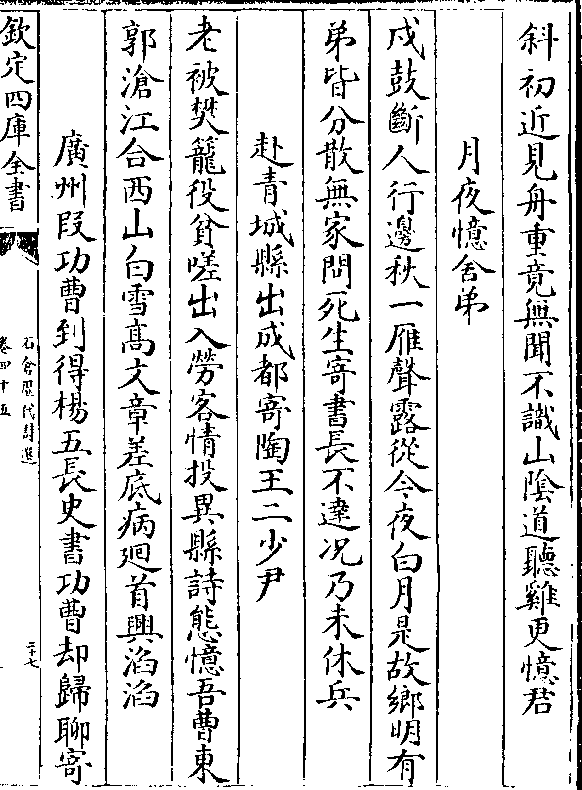 斜初近見舟重竟無聞不識山陰道聽雞更憶君
月夜憶舍弟
戍鼓斷人行邊秋一雁聲露從今夜白月是故鄉明有
弟皆分散無家問死生寄書長不達况乃未休兵
赴青城縣出成都寄陶王二少尹
老被樊籠役貧嗟出入勞客情投異縣詩態憶吾曹東
郭滄江合西山白雪髙文章差底病廻首興滔滔
廣州叚功曹到得楊五長史書功曹却歸聊寄
欽定四庫全書
石倉歴代詩選
卷四十五
二十七